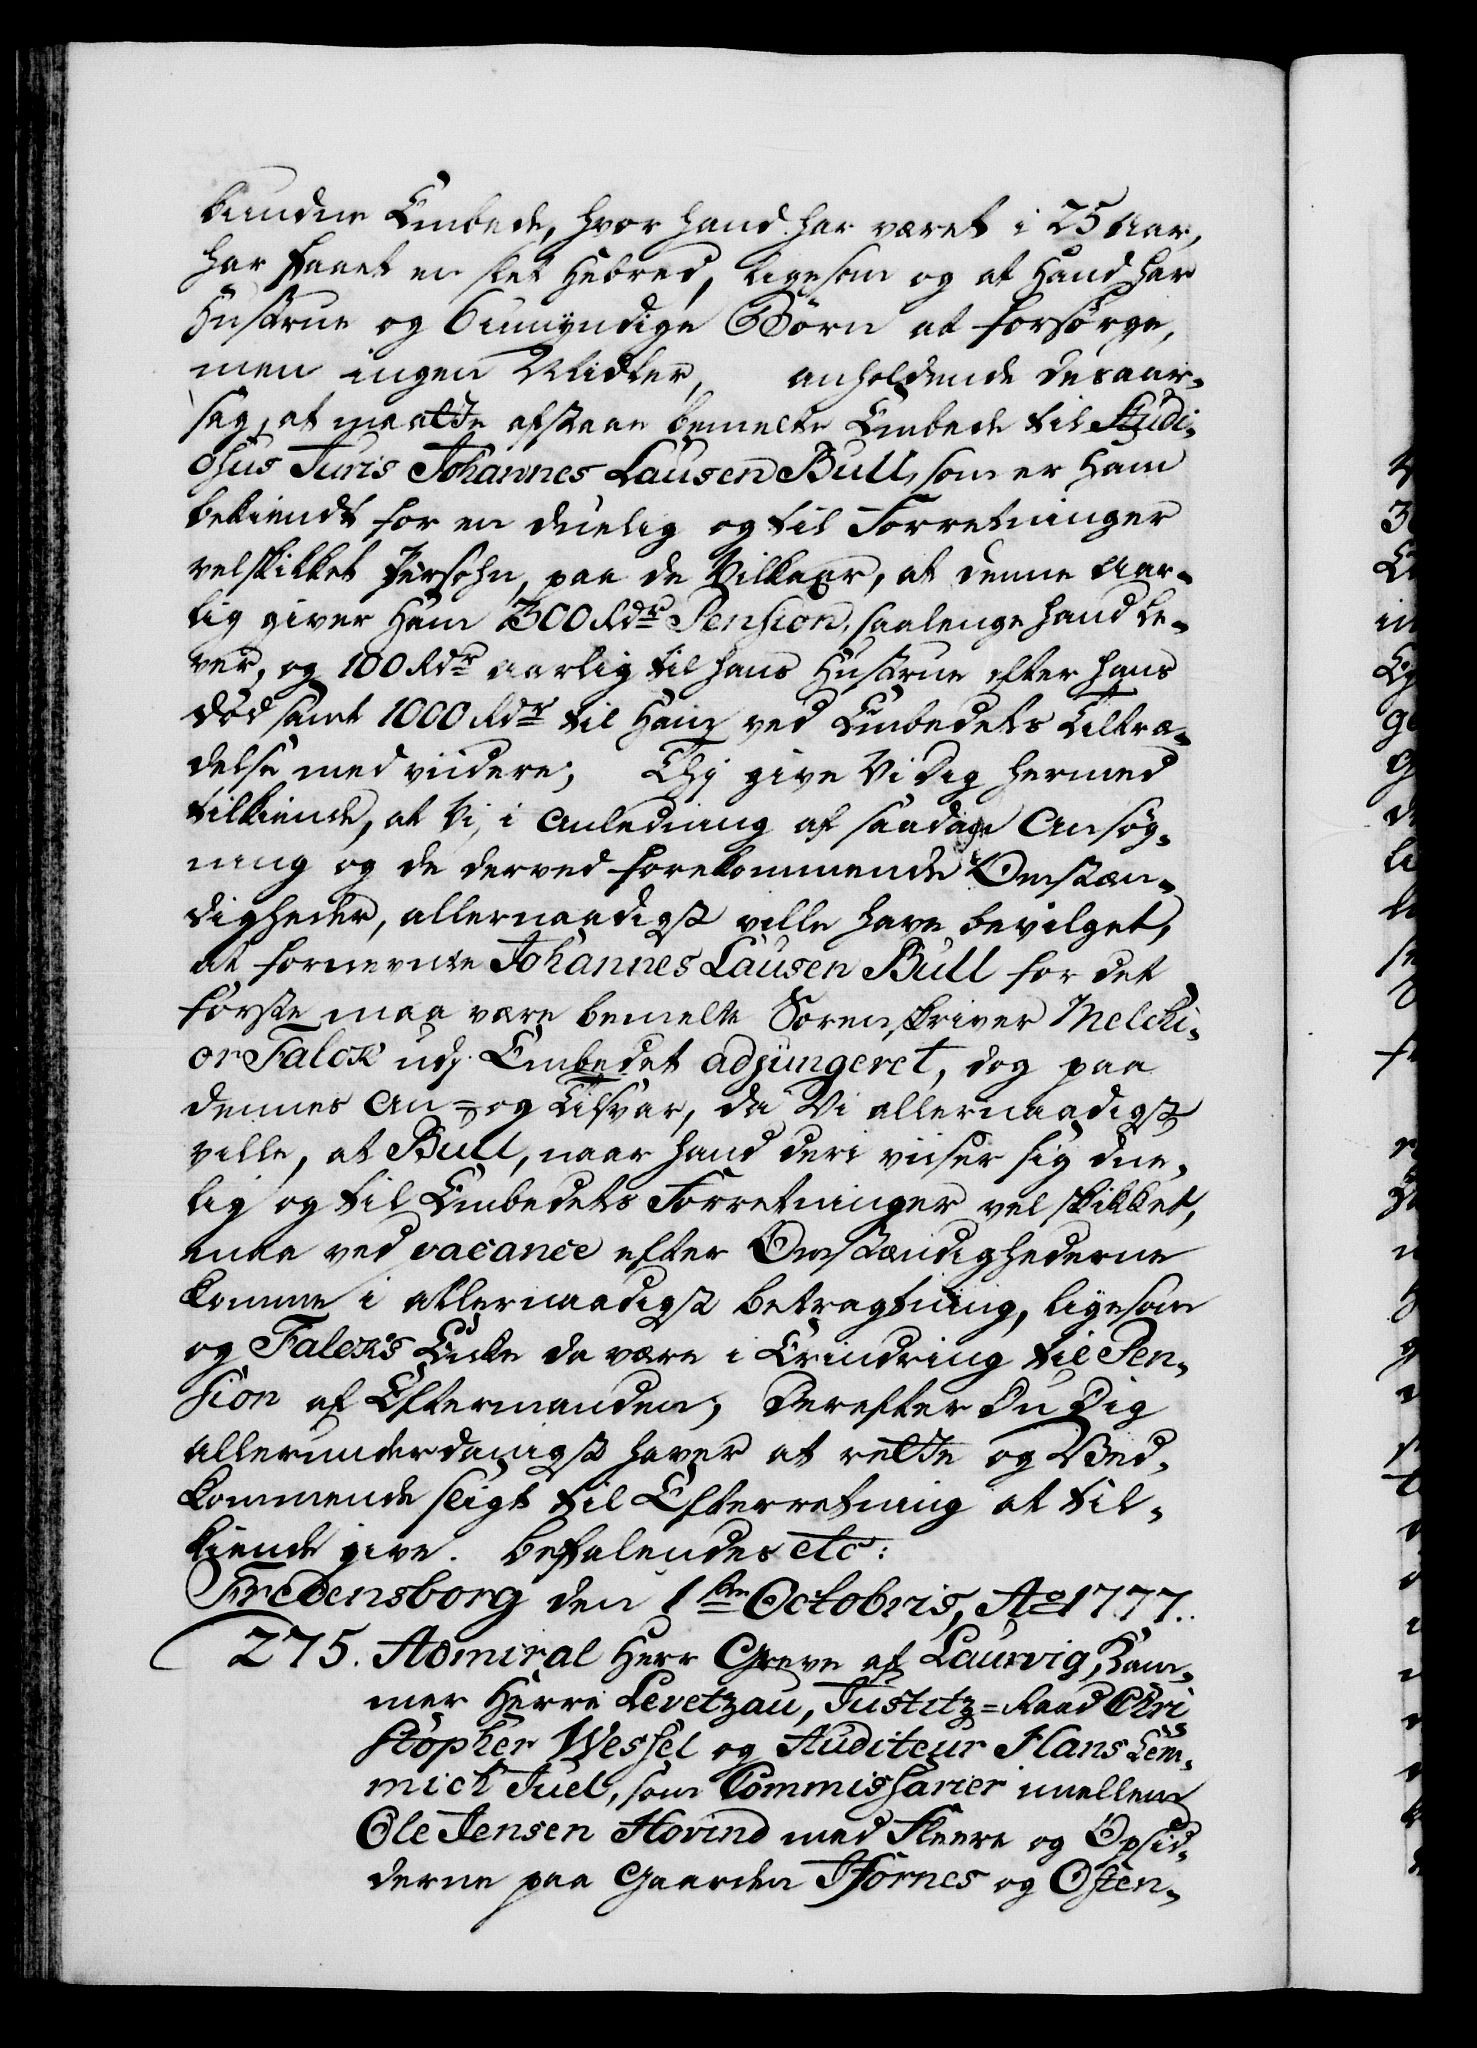 bundne Embede, hvor hand har været i 25 Aar,
har faaet en slet Hebred, ligesom og at Hand har
Hustrue og 6 umyndige Börn at forsörge,
men ingen Midler, anholdende desaar-
sag, at maatte afstaae bemelte Embede til Studi-
osus Juris Johannes Lausen Bull, som er ham
bekiendt for en duelig og til Forretninger
velskikket Persohn, paa de Vilkaar, at denne aar-
lig giver Ham 300 Rdr Pension, saalenge hand le-
ver, og 100 Rdr aarlig til hans Hustrue efter hans
död samt 1000 Rdr til Ham ved Embedets Tiltræ-
delse med viidere; Thj give Vi dig hermed
tilkiende, at Vi, i Anledning af saadan Ansög-
ning og de derved forekommende Omstæn-
digheder, allernaadigst ville have bevilget,
at fornevnte Johannes Lausen Bull for det
förste maa være bemelte Sorenskriver Melchi-
or Falck udj Embedet adjungeret, dog paa
dennes An- og Tilsvar, da Vi allernaadigst
ville, at Bull, naar hand deri viiser sig due-
lig og til Embedets Forretninger vel skikket,
maa ved vacance efter Omstændighederne
komme i allernaadigst betragtning, ligesom
og Falcks Enke da være i Erindring til Pen-
sion af Eftermanden; Derefter Du Dig
allerunderdanigst haver at rette og Ved-
kommende sligt til Efterretning at til-
kiende give. Befalendes etc:
Fredensborg den 1ste Octobris, Ao 1777.
275. Admiral Herr Greve af Laurvig, Kam-
mer Herre Levetzau, Justitz-Raad Chri
stopher Wessel og Auditeur Hans Lem-
mich Juel, som Commissarier imellem
Ole Jensen Hovind med Fleere og Opsid-
derne paa Gaarden Tjörnes og Osten-